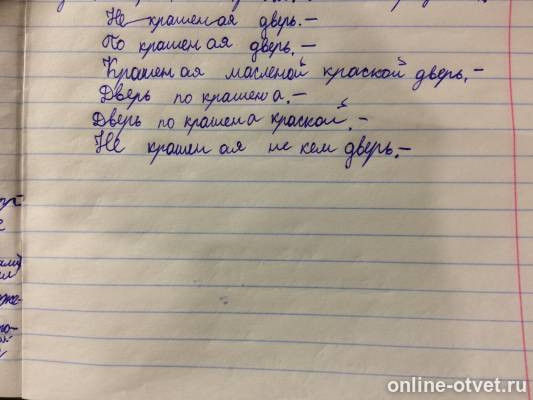 Не крашен ая дверь.-
По крашен ая дверь.-
Крашен ая масленой краской дверь.-
Дверь по крашена.-
Дверь по крашена краской.-
Не крашен ая не кем дверь.-
online-otvet.ru